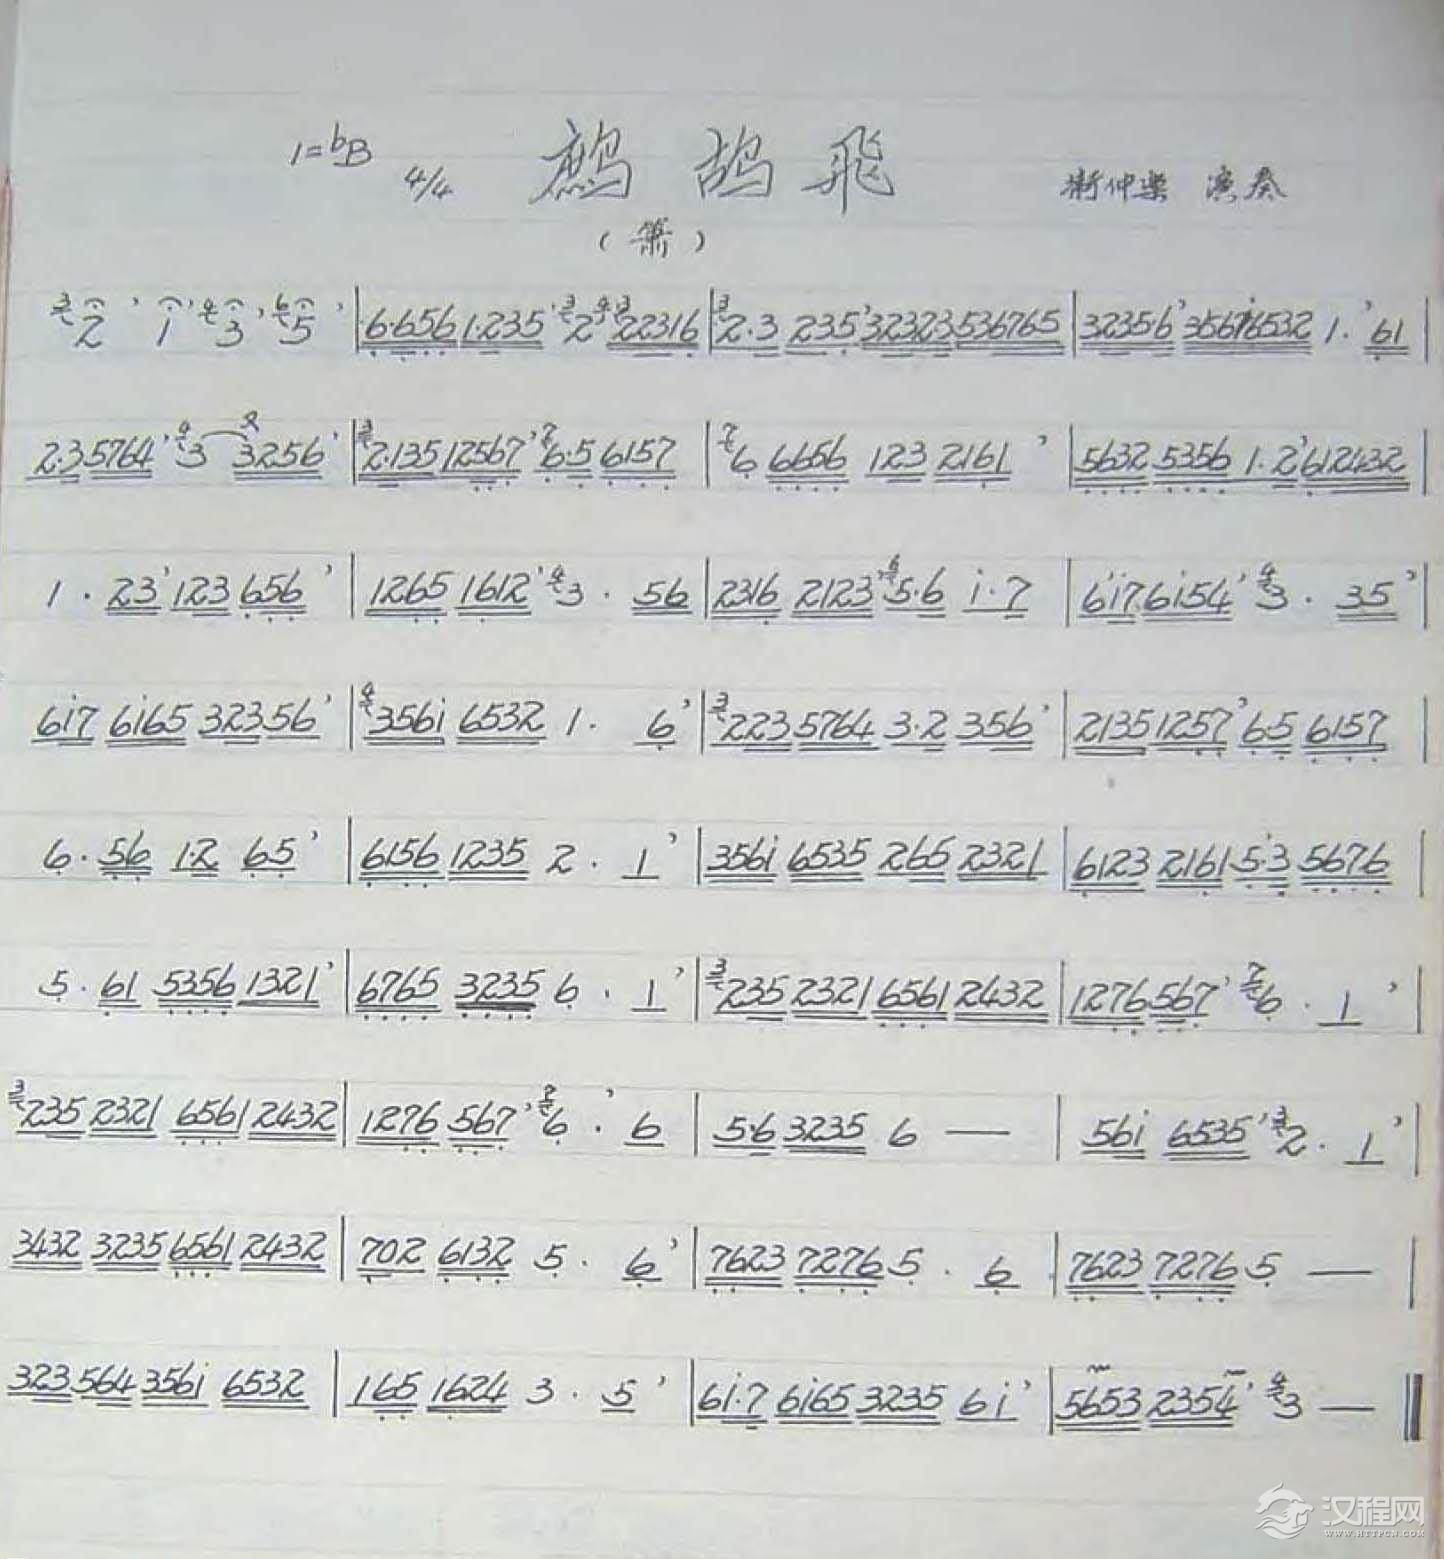 1=bB 4/4 鹧鸪飛 衛仲樂 演奏
(箫)
2 ’ 1 ’ 3 ’ 5 ’ | 6·656 1·235 ’ 2 ’ 22316 | 2·3 235 ’ 32323 536765 | 32356 ’ 356i6532 1· ’ 61 |
2·3 5764 ’ 3 3256 ’ | 2·135 12567 ’ 6·5 6157 | 6 6656 123 2161 ’ | 5632 5356 1·2 ’ 612432 |
1· 23 ’ 123 656 ’ | 1265 1612 ’ 3· 56 | 2316 2123 ’ 5·6 i·7 | 6i7 6i54 ’ 3· 35 ’ |
6i7 6i65 32356 ’ | 356i 6532 1· 6 ’ | 223 5764 3·2 356 ’ | 2135 1257 ’ 65 6157 |
6· 56 1·2 65 ’ | 6156 1235 2· 1 ’ | 356i 6535 265 2321 | 6123 2161 5·3 5676 |
5· 61 5356 1321 ’ | 6765 3235 6· 1 ’ | 235 2321 6561 2432 | 1276 567 ’ 6· 1 ’ |
235 2321 6561 2432 | 1276 567 ’ 6· ’ 6 | 5·6 3235 6 — | 56i 6535 ’ 2· 1 ’ |
3432 3235 6561 2432 | 702 6132 5· 6 ’ | 7623 7276 5· 6 | 7623 7276 5 — |
323 564 356i 6532 | 165 1624 3· 5 ’ | 6i·7 6i65 3235 6i ’ | 5653 2354 ’ 3 — ‖
汉程网
WWW.HTTPCN.COM